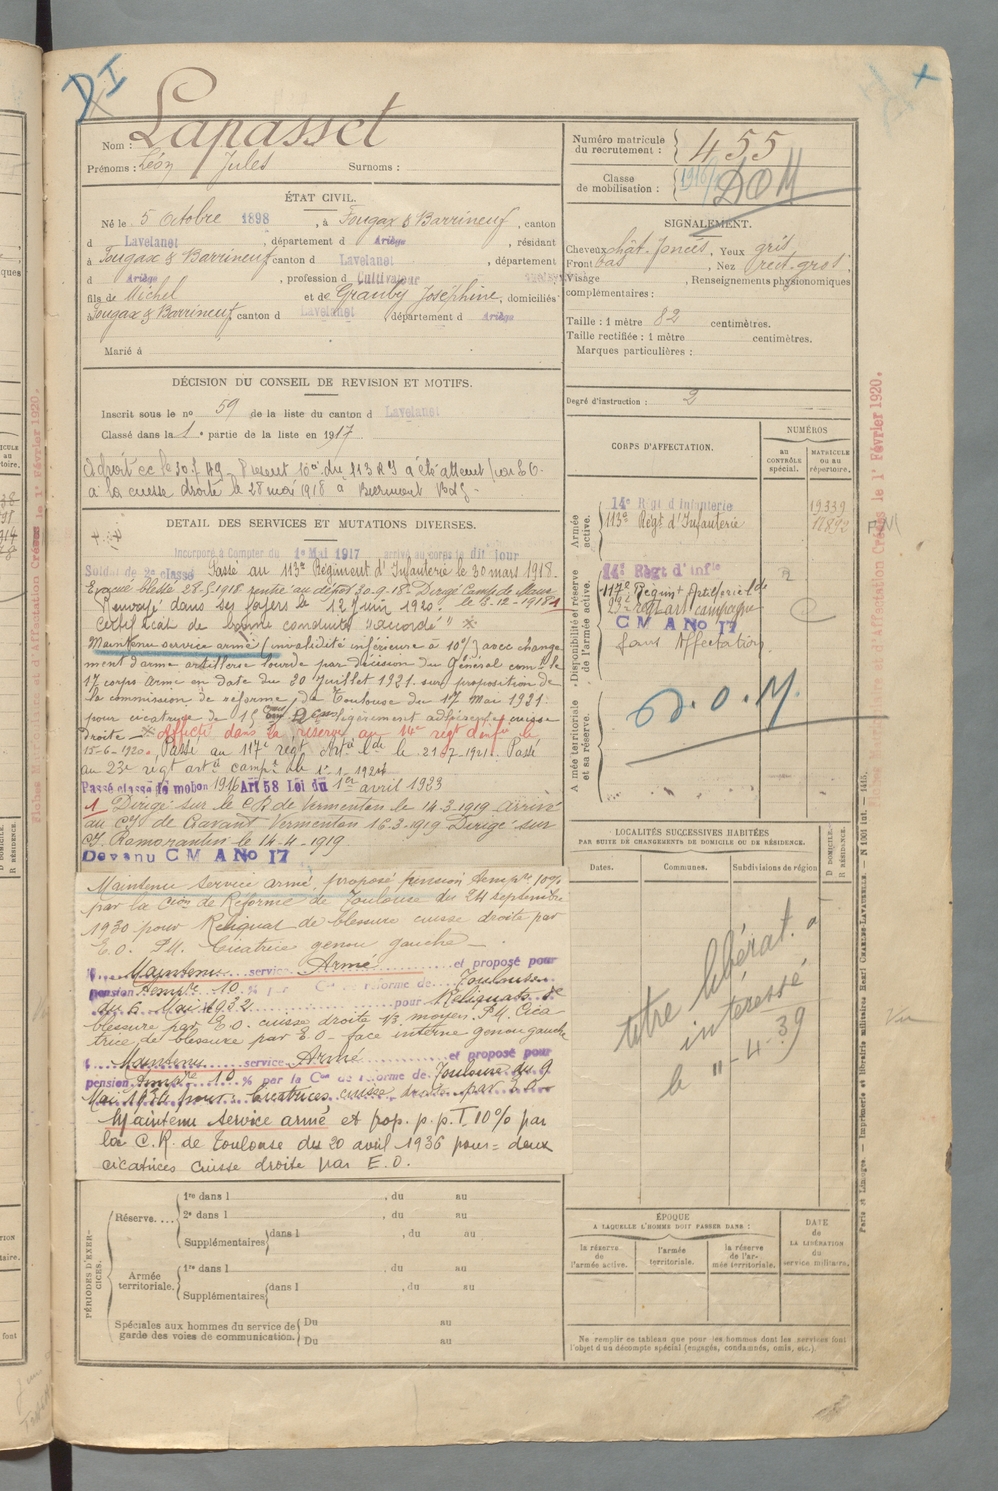 DI
Nom : Lapasset
Prénoms : Léon Jules Surnoms :
ÉTAT CIVIL.
Né le 5 Octobre 1898, à Fougax & Barrineuf, canton
d Lavelanet, département d Ariège, résidant
à Fougax & Barrineuf canton d Lavelanet, département
d Ariège, profession de Cultivateur
fils de Michel et de Grauby Joséphine, domiciliés
à Fougax & Barrineuf, canton d Lavelanet, département d Ariège
Marié à
DÉCISION DU CONSEIL DE REVISION ET MOTIFS.
Inscrit sous le no 59 de la liste du canton d Lavelanet
Classé dans la 1e partie de la liste en 1917
du 113 RI a été atteint par E.O.
à la cuisse droite le 28 mai 1918 à
DETAIL DES SERVICES ET MUTATIONS DIVERSES.
Incorporé à Compter du 1e Mai 1917 arrivé au corps le dit jour
Soldat de 2e classe Passé au 113e Régiment d'Infanterie le 30 mars 1918.
Evacué blessé 28-5-1918 rentré au dépôt 30-9-18 Dirigé le 8-12-1918 1
Renvoyé dans ses foyers le 12 Juin 1920.
Certificat de bonne conduite "accordé" x
Maintenu service armé (invalidité inférieure à 10%) avec change
ment d'arme artillerie lourde par décision du Général comt le
17 corps Armé en date du 20 Juillet 1921. sur proposition de
la commission de réforme de Toulouse du 17 Mai 1921.
pour cicatrice de 15 légèrement adhérente cuisse
droite — x Affecté dans la réserve au 14e régt d'infie le
15-6-1920. Passé au 117e régt Artie Lde le 21-7-1921. Passé
au 23e régt artie campe le 1-1-1924
Passé classe de mobon 1916 Art 58 Loi du 1er avril 1923
1 Dirigé sur le C.R. de Vermenton le 14-3-1919 arrivé
au C.I. de Cravant Vermenton 16-3-1919 Dirigé sur
C.I. Romorantin le 14-4-1919
Devenu C M A No 17
Maintenu service armé, proposé pension tempre 10%
par la Cion de Réforme de Toulouse du 24 septembre
1930 pour Reliquat de blessure cuisse droite par
E.O. P.M. Cicatrice genou gauche —
Maintenu service Armé et proposé pour
pension tempre 10 % par Con de réforme de Toulouse
du 6 Mai 1932 pour Reliquats de
blessure par E.O. cuisse droite 1/3 moyen. P.M. Cica
trice de blessure par E.O - face interne genou gauche
Maintenu service Armé et proposé pour
pension tempre 10 % par la Con de réforme de Toulouse du 9
Mai 1934 pour : Cicatrices cuisse droite par E.O
Maintenu service armé et prop. p. p. T. 10% par
la C.R. de Toulouse du 20 avril 1936 pour = deux
cicatrices cuisse droite par E.O.
PÉRIODES D'EXERCICES.
Réserve....
1re dans l , du au
2e dans l , du au
Supplémentaires dans l , du au
Armée territoriale.
1re dans l , du au
Supplémentaires dans l , du au
Spéciales aux hommes du service de garde des voies de communication.
Du au
Du au
Numéro matricule du recrutement : 455
Classe de mobilisation : 1916 DOM
SIGNALEMENT.
Cheveux chât. foncés, Yeux gris
Front bas, Nez rect. gros,
Visage , Renseignements physionomiques
complémentaires :
Taille : 1 mètre 82 centimètres.
Taille rectifiée : 1 mètre centimètres.
Marques particulières :
Degré d'instruction : 2
CORPS D'AFFECTATION.
NUMÉROS
AU CONTRÔLE spécial.
MATRICULE OU AU répertoire.
Armée active.
14e Régt d'Infanterie 19339
113e Régt d'Infanterie 11892
Disponibilité et réserve de l'armée active.
14e Régt d'infie
117e Régimt Artillerie Lde
23e régt art campagne
C M A No 17
Sans Affectation
Armée territoriale et sa réserve.
D.O.M.
LOCALITÉS SUCCESSIVES HABITÉES
PAR SUITE DE CHANGEMENTS DE DOMICILE OU DE RÉSIDENCE.
Dates. Communes. Subdivisions de région
D DOMICILE. R RÉSIDENCE.
titre libérat. à
intéressé
le 11-4-39
ÉPOQUE
A LAQUELLE L'HOMME DOIT PASSER DANS :
la réserve de l'armée active.
l'armée territoriale.
la réserve de l'armée territoriale.
DATE de LA LIBÉRATION du service militaire.
Ne remplir ce tableau que pour les hommes dont les services font
l'objet d'un décompte spécial (engagés, condamnés, omis, etc.).
Fiches Matricules et d'Affectation Créées le 1er Février 1920.
Paris et Limoges. — Imprimerie et librairie militaires Henri CHARLES-LAVAUZELLE.
Vu